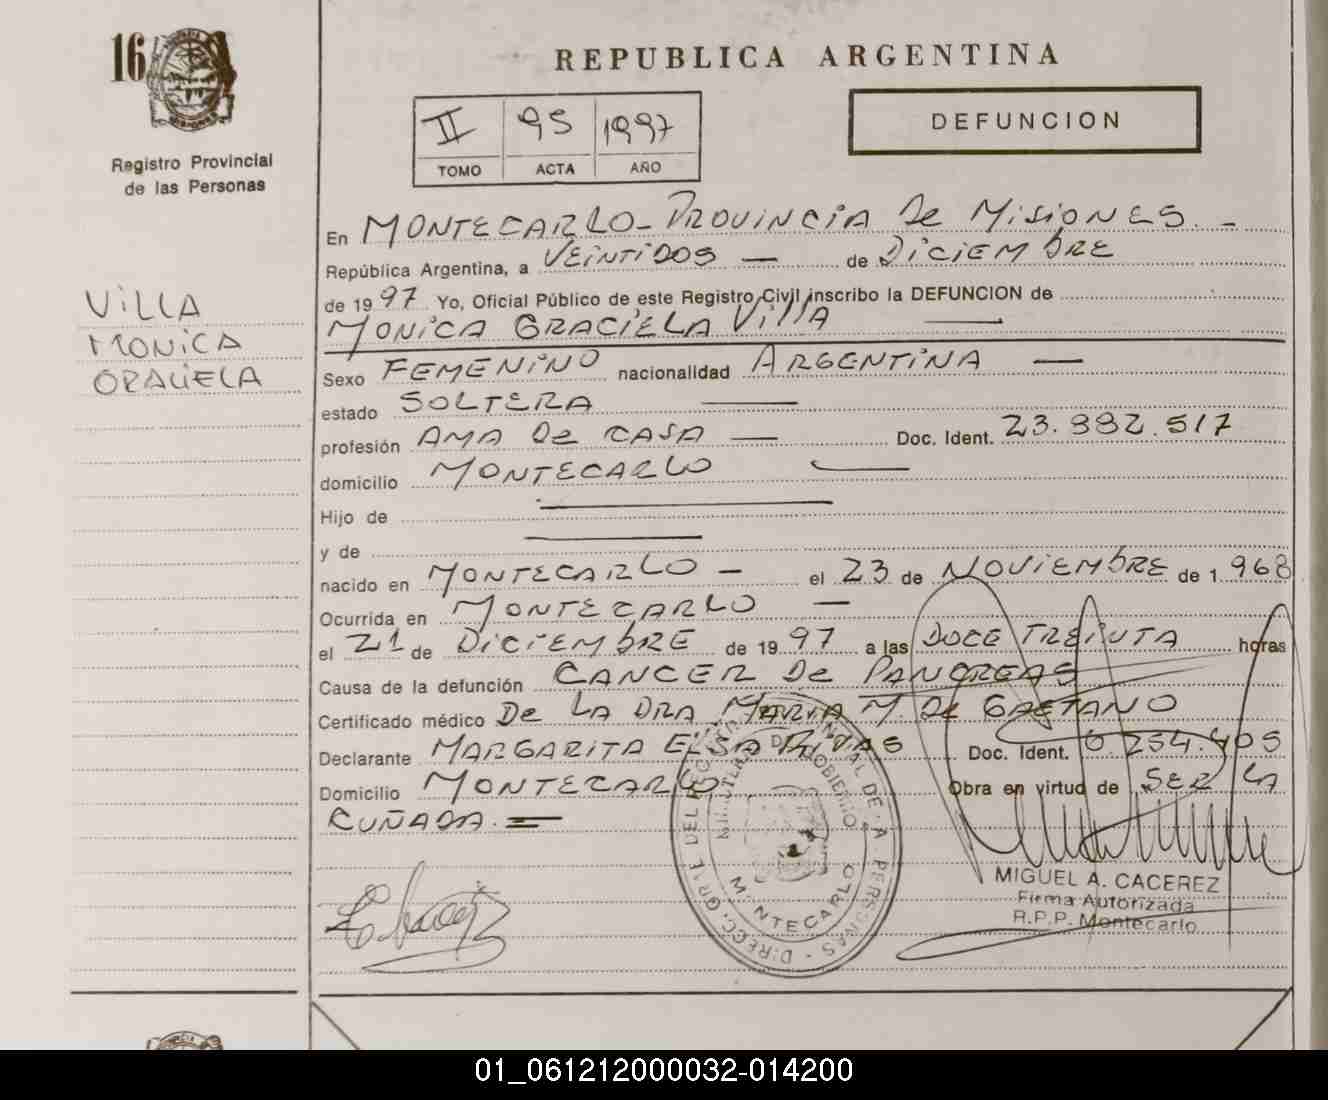 16
Registro Provincial
de las Personas
VILLA
MONICA
GRACIELA
REPUBLICA ARGENTINA
II 95 1997
TOMO ACTA AÑO
DEFUNCION
En MONTECARLO - PROVINCIA DE MISIONES. -
República Argentina, a VEINTIDOS — de DICIEMBRE
de 1997 Yo, Oficial Público de este Registro Civil inscribo la DEFUNCION de
MONICA GRACIELA VILLA —
Sexo FEMENINO nacionalidad ARGENTINA —
estado SOLTERA —
profesión AMA DE CASA — Doc. Ident. 23.992.517
domicilio MONTECARLO —
Hijo de —
y de —
nacido en MONTECARLO — el 23 de NOVIEMBRE de 1968
Ocurrida en MONTECARLO —
el 21 de DICIEMBRE de 1997 a las DOCE TREINTA horas
Causa de la defunción CANCER DE PANCREAS
Certificado médico DE LA DRA MARIA M. DE GAETANO
Declarante MARGARITA ELSA Doc. Ident.
Domicilio MONTECARLO Obra en virtud de SER LA
CUÑADA. =
MONTECARLO
MIGUEL A. CACEREZ
Firma Autorizada
R.P.P. Montecarlo
01_061212000032-014200